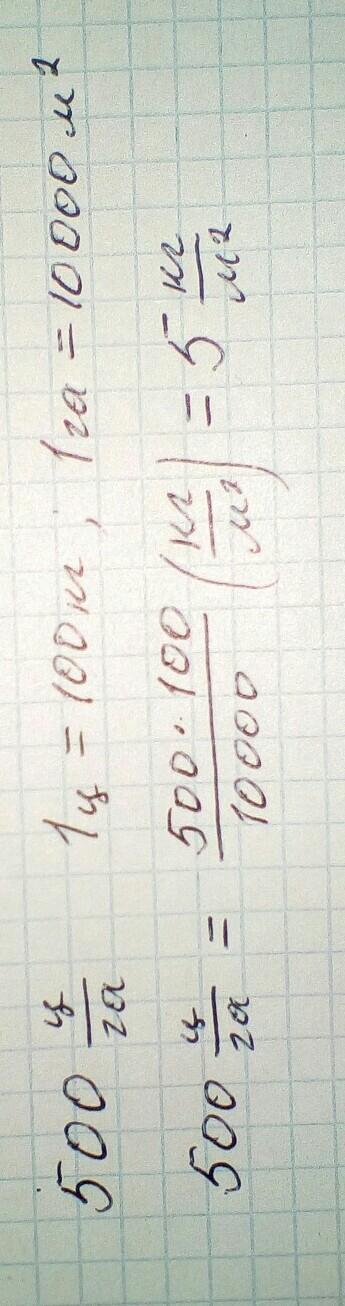 500 ц/га 1ц = 100кг; 1га = 10000 м²
500 ц/га = 500·100/10000 (кг/м²) = 5 кг/м²